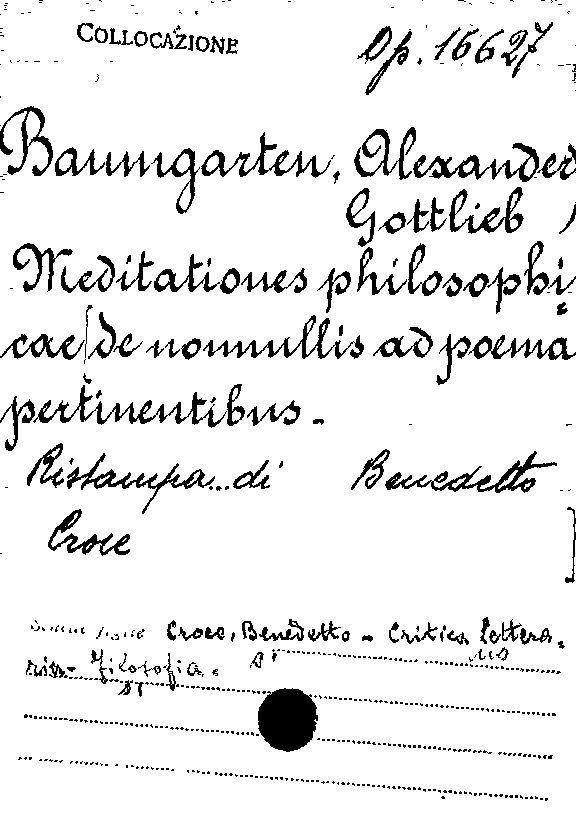 COLLOCAZIONE
Op. 16627
Baumgarten, Alexander
Gottlieb
Meditationes philosophi=
cae de nonnullis ad poema
pertinentibus.
Ristampa...di Benedetto
Croce
Croce, Benedetto - Critica lettera-
ria - Filosofia.